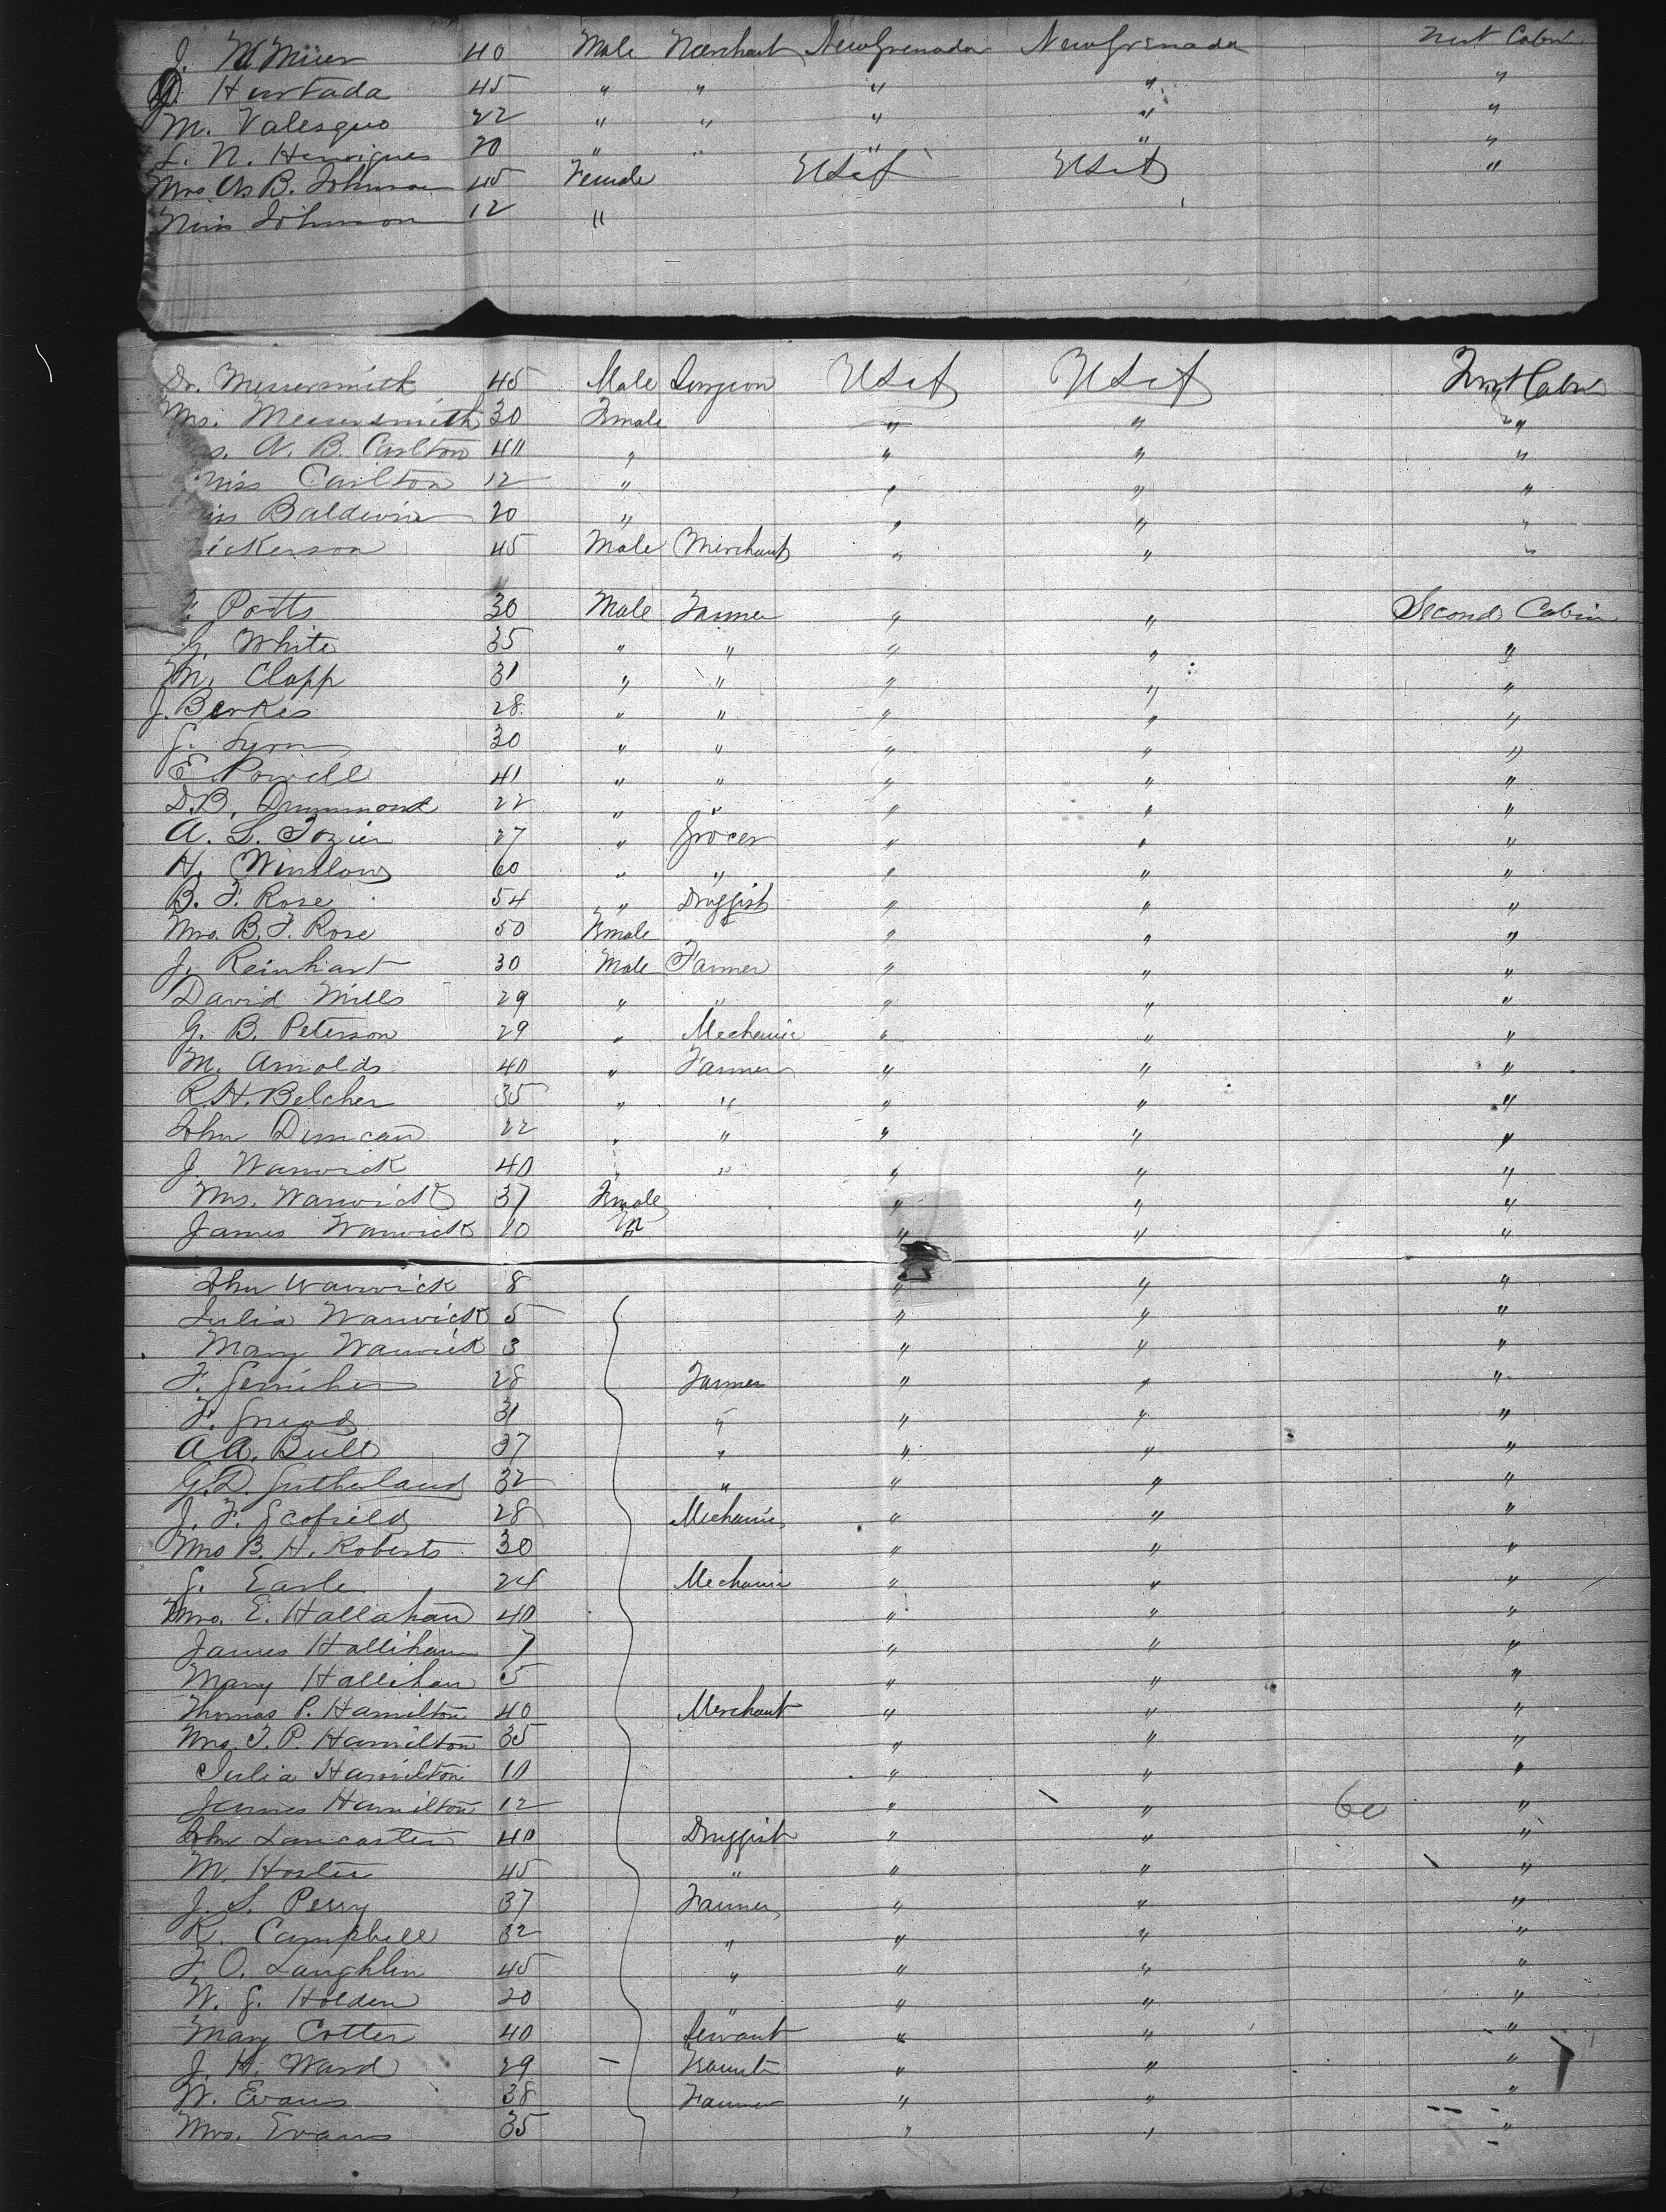 J. M Miier 40 Male Merchant New Grenada New Grenada First Cabin
J. Hurtada 45 " " " " "
M. Valesquo 22 " " " " "
L. N. Henriques 20 " " " " "
Mrs A B. Johnson 45 Female U S of A U S of A "
Miss Johnson 12 "
Dr. Messersmith 45 Male Surgeon U S of A U S of A First Cabin
Mrs. Messersmith 30 Female " " "
A. B. Carlton 40 " " " "
Miss Carlton 12 " " " "
Baldwin 20 " " " "
ickerson 45 Male Merchant " " "
Potts 30 Male Farmer " " Second Cabin
G. White 35 " " " " "
M. Clapp 31 " " " " "
J. Berkes 28 " " " " "
G. Lyon 30 " " " " "
E. Powell 41 " " " " "
D. B. Drummond 22 " " " " "
A. L. Tozier 27 " Grocer " " "
H. Winslow 60 " " " " "
B. F. Rose 54 " Druggist " " "
Mrs. B. F. Rose 50 Female " " "
J. Reinhart 30 Male Farmer " " "
David Mills 29 " " " " "
G. B. Peterson 29 " Mechanic " " "
M. Arnolds 40 " Farmer " " "
R. H. Belcher 35 " " " " "
John Duncan 22 " " " " "
J. Warwick 40 " " " " "
Mrs. Warwick 37 Female " " "
James Warwick 10 M " " "
John Warwick 8 " " "
Julia Warwick 5 " " "
Mary Warwick 3 " " "
F. 28 Farmer " " "
F. 31 " " " "
A A. Bull 37 " " " "
G. D. Sutherland 32 " " " "
J. F. Scofield 28 Mechanic " " "
Mrs B. H. Roberts 30 " " "
G. Earle 24 Mechanic " " "
Mrs. E. Hallahan 40 " " "
James Hallihan 7 " " "
Mary Hallihan 5 " " "
Thomas P. Hamilton 40 Merchant " " "
Mrs. T. P. Hamilton 35 " " "
Julia Hamilton 10 " " "
James Hamilton 12 " " 60 "
John Lancaster 40 Druggist " " "
M. Hoster 45 " " " "
J. S. Perry 37 Farmer " " "
R. Campbell 32 " " " "
F O. Laughlin 45 " " " "
W. G. Holden 20 " " " "
Mary Cotter 40 Servant " " "
J. H. Ward 29 — " " "
W. Evans 38 Farmer " " "
Mrs. Evans 35 " " "